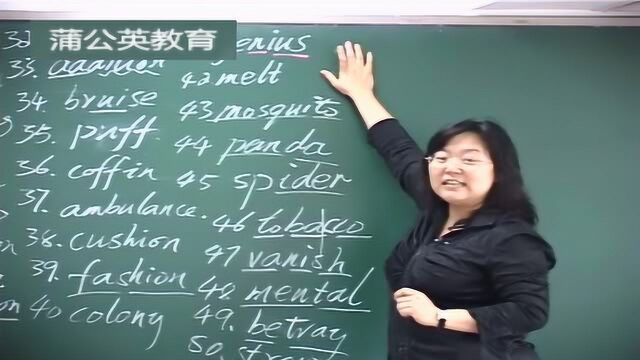 蒲公英教育
33.
34. bruise
35. puff
36. coffin
37. ambulance.
38. cushion
39. fashion
40 colony
enius
42 melt
43 mosquito
44 panda
45 spider
46 tobacco
47 vanish
48 mental
49. betray
50.